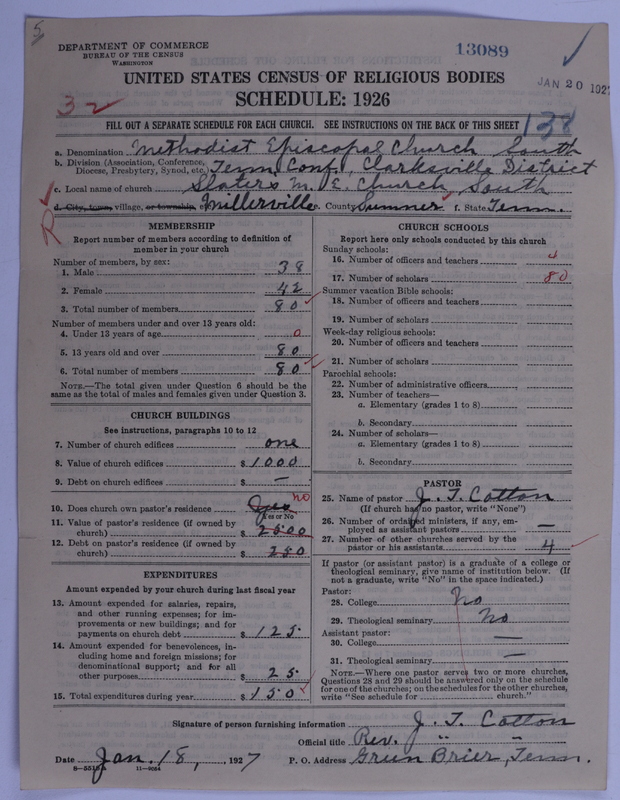 5
DEPARTMENT OF COMMERCE
BUREAU OF THE CENSUS
WASHINGTON
13089
JAN 20 1927
UNITED STATES CENSUS OF RELIGIOUS BODIES
SCHEDULE: 1926
32
FILL OUT A SEPARATE SCHEDULE FOR EACH CHURCH. SEE INSTRUCTIONS ON THE BACK OF THIS SHEET
138
a. Denomination Methodist Episcopal Church South
b. Division (Association, Conference, Diocese, Presbytery, Synod, etc.) Tenn. Conf., Clarksville District
c. Local name of church Slaters M. E. Church, South
d. City, town, village, or township, Millerville e. County Sumner f. State Tenn.
R
MEMBERSHIP
Report number of members according to definition of
member in your church
Number of members, by sex:
1. Male 38
2. Female 42
3. Total number of members 80
Number of members under and over 13 years old:
4. Under 13 years of age 0
5. 13 years old and over 80
6. Total number of members 80
NOTE.—The total given under Question 6 should be the
same as the total of males and females given under Question 3.
CHURCH BUILDINGS
See instructions, paragraphs 10 to 12
7. Number of church edifices one
8. Value of church edifices $1000
9. Debt on church edifices $ —
10. Does church own pastor's residence Yes no
Yes or No
11. Value of pastor's residence (if owned by
church) $ 2500
12. Debt on pastor's residence (if owned by
church) $ 250
EXPENDITURES
Amount expended by your church during last fiscal year
13. Amount expended for salaries, repairs,
and other running expenses; for im-
provements or new buildings; and for
payments on church debt $125
14. Amount expended for benevolences, in-
cluding home and foreign missions; for
denominational support; and for all
other purposes $ 25
15. Total expenditures during year $150
CHURCH SCHOOLS
Report here only schools conducted by this church
Sunday schools:
16. Number of officers and teachers
17. Number of scholars 80
Summer vacation Bible schools:
18. Number of officers and teachers
19. Number of scholars
Week-day religious schools:
20. Number of officers and teachers
21. Number of scholars
Parochial schools:
22. Number of administrative officers
23. Number of teachers—
a. Elementary (grades 1 to 8)
b. Secondary
24. Number of scholars—
a. Elementary (grades 1 to 8)
b. Secondary
PASTOR
25. Name of pastor J. T. Cotton
(If church has no pastor, write "None")
26. Number of ordained ministers, if any, em-
ployed as assistant pastors —
27. Number of other churches served by the
pastor or his assistants 4
If pastor (or assistant pastor) is a graduate of a college or
theological seminary, give name of institution below. (If
not a graduate, write "No" in the space indicated.)
Pastor:
28. College No
29. Theological seminary No
Assistant pastor:
30. College —
31. Theological seminary —
NOTE.—Where one pastor serves two or more churches,
Questions 28 and 29 should be answered only on the schedule
for one of the churches; on the schedules for the other churches,
write "See schedule for church."
Signature of person furnishing information J. T. Cotton
Official title Rev. " "
Date Jan. 18, 1927 P. O. Address Green Brier, Tenn.
8—5515 a 11—9064